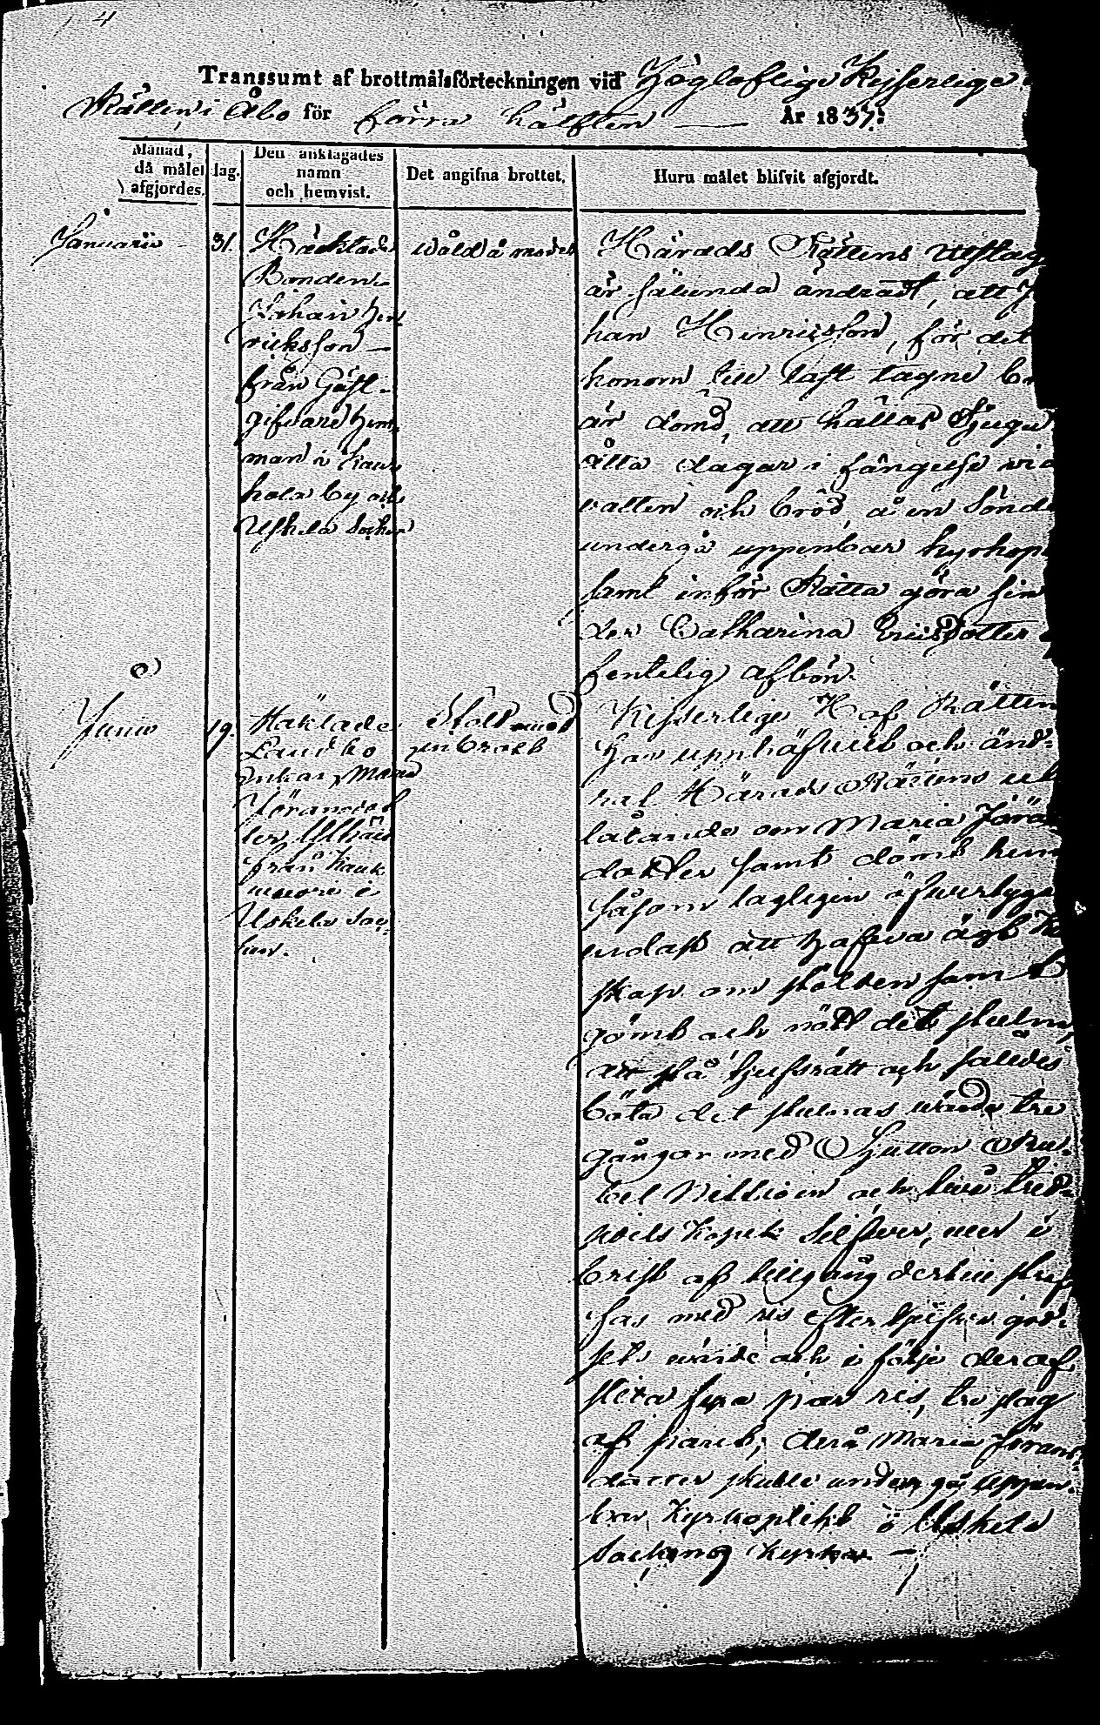 4
Transsumt af brottmålsförteckningen vid Högloflige Kejserlige
Rätten i Åbo för förra hälften År 1837.
Månad, då målet afgjordes.
dag.
Den anklagades namn och hemvist.
Det angifna brottet.
Huru målet blifvit afgjordt.
Januarii
31.
Häcktade
Bonden
Johan Hen
ricksson
från Gäst
gifvare hem
man i
by och
Uskela Socken
Våld å moder
Härads Rättens Utslag
är sålunda ändradt, att
han Henricsson, för det
honom till last tagne
är dömd, att hållas Tjugu
åtta dagar i fängelse vid
vatten och bröd, å en Sönd
undergå uppenbar kyrkop
samt inför Rätta göra sin
der Catharina Ericsdotter
fentelig afbön.
Junii
19.
Häktade
Enkan Maria
Jöransdot
ter
från
i
Uskela Soc
ken.
Stöld med
inbrott
Kejserlige Hof Rätten
har upphäfvit och änd
rat Härads Rättens ut
låtande om Maria Jörans
dotter samt dömt henne
såsom lagligen öfverbyga
endast att hafva ägt
skap om stölden samt
gömt och nött det stulna,
att stå tjufsrätt och således
böta det stulnas värde tre
gånger med Sjutton Ru
bel Nittioen och två tred
jedels Kopek Silfver, men i
brist af tillgång dertill straf
fas med ris efter tjufva god
sets värde och i följe deraf
slita fyra par ris, tre slag
af paret, derå Maria Jörans
dotter skulle undergå uppen
bar Kyrkoplikt i Uskela
Sockens Kyrka